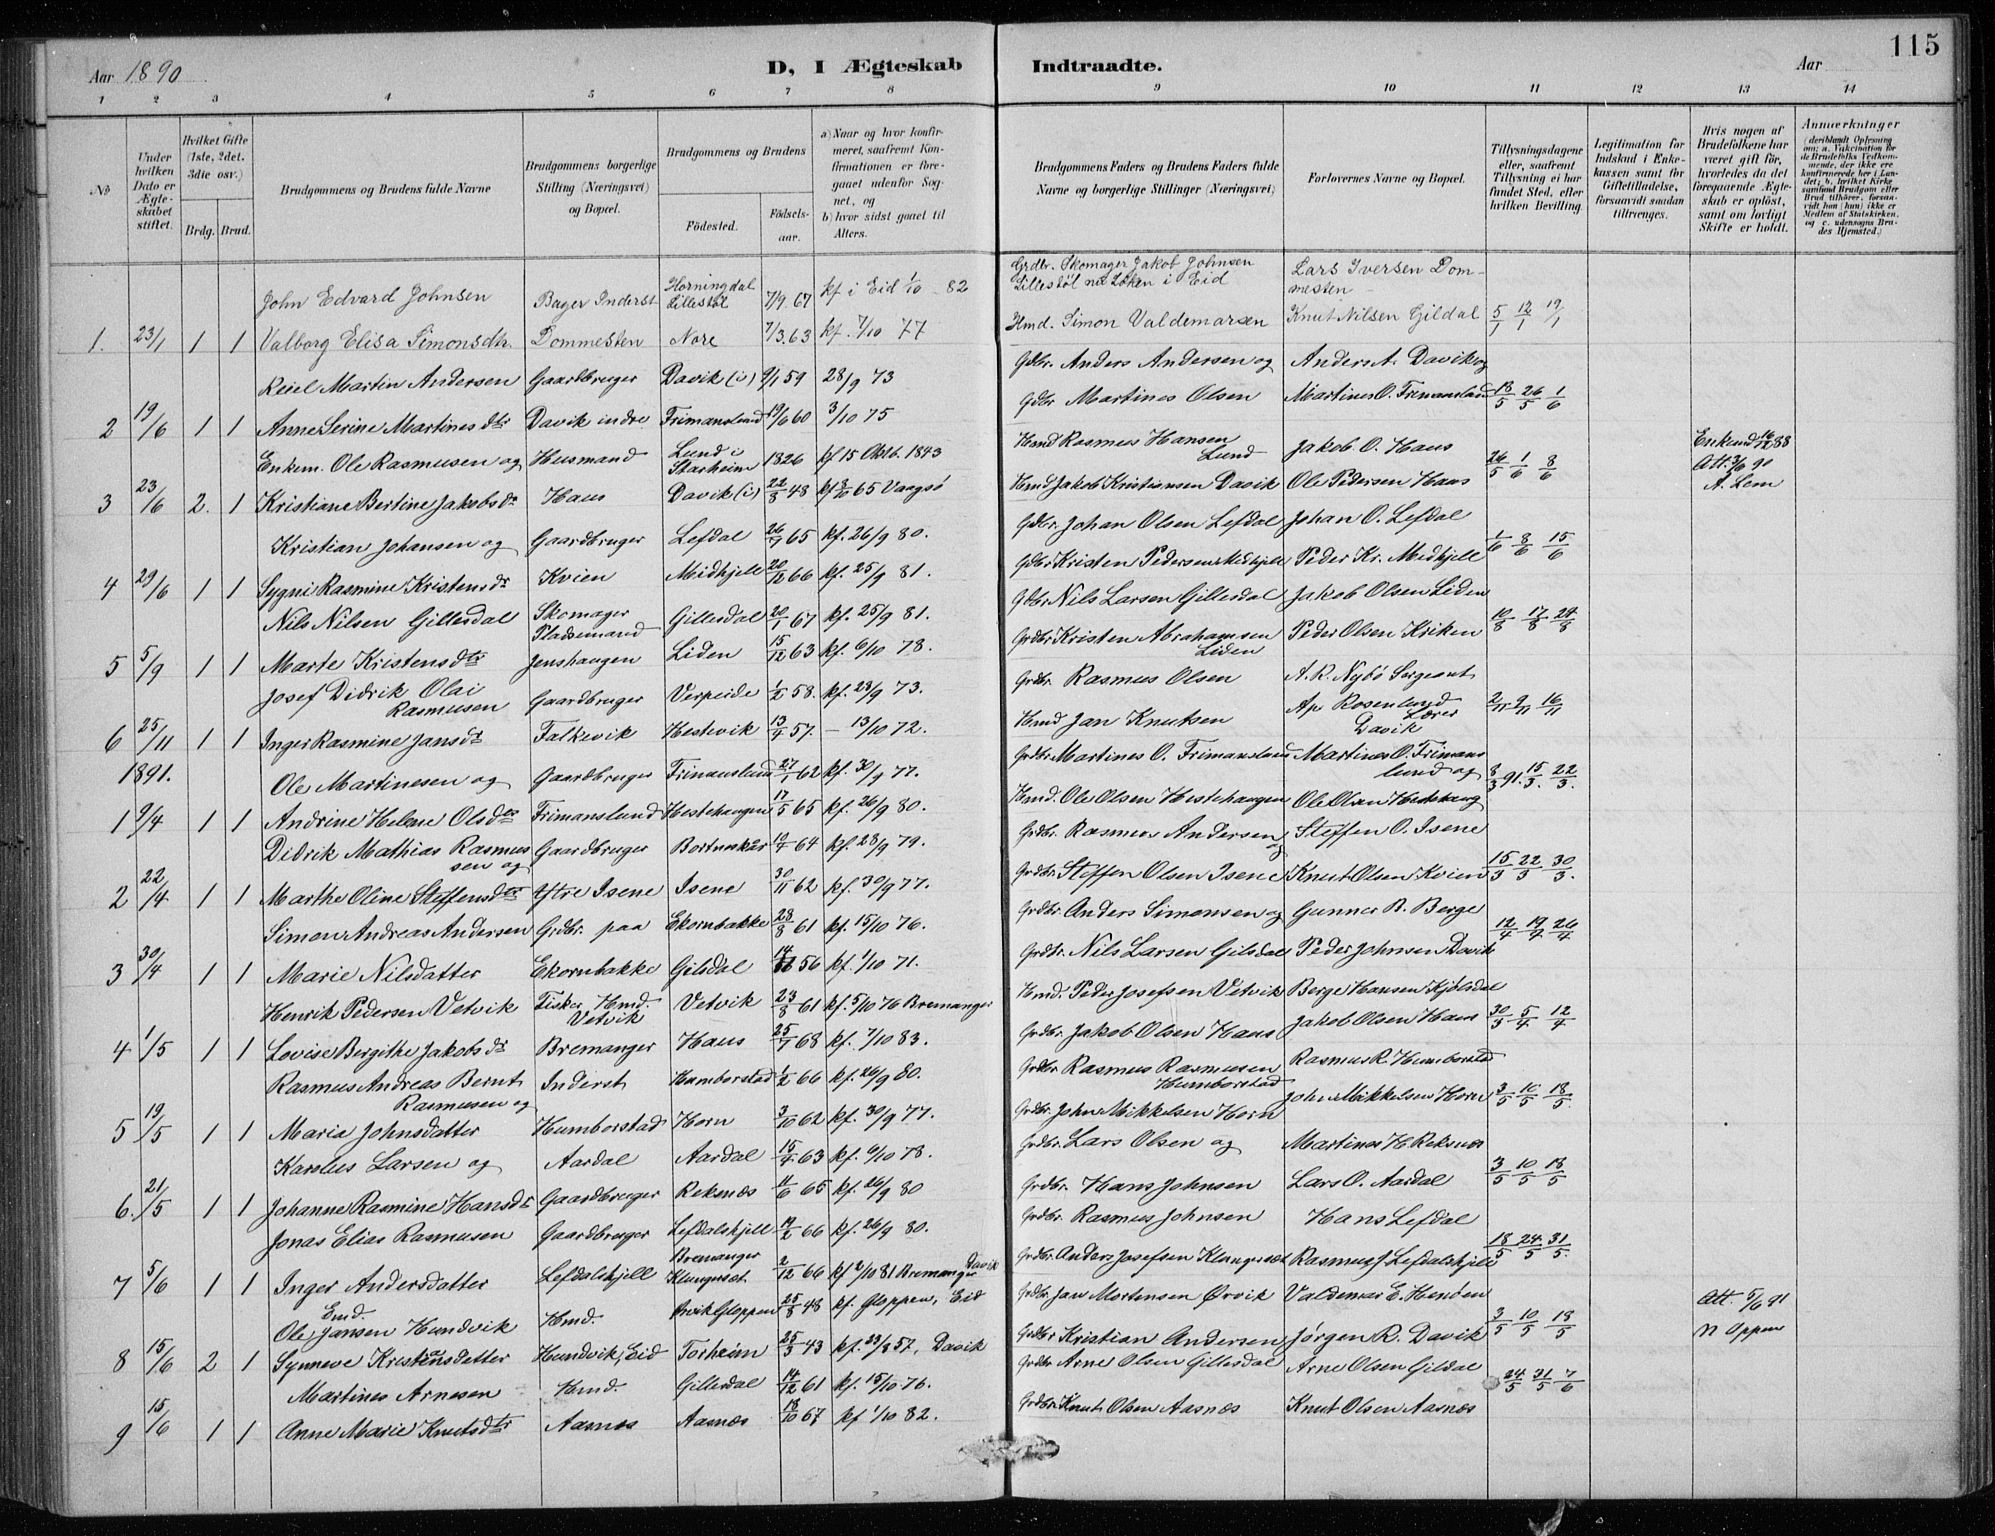 Aar 1890
D, I Ægteskab
Indtraadte.
Aar
115
1 2 3 4 5 6 7 8 9 10 11 12 13 14
No
Under hvilken Dato er Ægteskabet stiftet.
Hvilket Gifte (1ste, 2det, 3die osv.)
Brdg. Brud.
Brudgommens og Brudens fulde Navne
Brudgommens borgerlige Stilling (Næringsvei) og Bopæl.
Brudgommens og Brudens
Födested.
Födselsaar.
a) Naar og hvor konfirmeret, saafremt Konfirmationen er foregaaet udenfor Sognet, og
b) hvor sidst gaaet til Alters.
Brudgommens Faders og Brudens Faders fulde Navne og borgerlige Stillinger (Næringsvei)
Forlovernes Navne og Bopæl.
Tillysningsdagene eller, saafremt Tillysning ei har fundet Sted, efter hvilken Bevilling
Legitimation for Indskud i Enkekassen samt for Giftetilladelse, forsaavidt saadan tiltrænges.
Hvis nogen af Brudefolkene har været gift før, hvorledes da det foregaaende Ægteskab er opløst, samt om lovligt Skifte er holdt.
Anmærkninger
(deriblandt Oplysning om: a. Vakcination for de Brudefolks Vedkommende, der ikke ere konfirmerede her i Landet; b. hvilket Kirkesamfund Brudgom eller Brud tilhører, forsaavidt han (hun) ikke er Medlem af Statskirken, og c. udensogns Brudes Hjemsted.)
John Edvard Johnsen Bager Inderst Horningdal Lillestöl 7/9. 67 kf i Eid 1/10 82 Grdbr. Skomager Jakob Johnsen Lillestöl nu Löken i Eid Lars Iversen Dommesten
1. 23/1 1 1 Valborg Elisa Simonsdtr. Dommesten Nore 7/3. 63 kf. 7/10 77 Hmd. Simon Valdemarsen Knut Nilsen Gildal 5/1 12/1 19/1
Reiel Martin Andersen Gaardbruger Davik (i) 9/1 59 28/9 73 Gdbr. Anders Andersen og Anders A. Davik og
2 19/6 1 1 Anne Serine Martinesdtr Davik indre Frimanslund 19/6 60 3/10 75 Gdbr Martines Olsen Martines O. Frimanslund 18/5 26/5 1/6
Enkem. Ole Rasmusen og Husmand Lund i Starheim 1826 kf 15 Oktb. 1843 Hmd Rasmus Hansen Lund Jakob O. Haus Enkemd 16/12 88
3 23/6 2. 1 Kristiane Bertine Jakobsdr Haus Davik (i) 22/8 48 kf 8/10 65 Vaagsö Hmd Jakob Kristiansen Davik Ole Pedersen Haus 26/5 1/6 8/6 Att. 3/6 90 A. Lem
Kristian Johansen og Gaardbruger Lefdal 26/7 65 kf. 26/9 80. Gdbr. Johan Olsen Lefdal Johan O. Lefdal
4 29/6 1 1 Sygni Rasmine Kristensdr Kvien Midhjell 20/12 66 kf. 25/9 81. Gdbr Kristen Pedersen Midhjell Peder Kr. Midhjell 1/6 8/6 15/6
Nils Nilsen Gillesdal Skomager Pladsemand Gillesdal 20/1 67 kf. 25/9 81. Gdbr Nils Larsen Gillesdal Jakob Olsen Liden
5 5/9 1 1 Marte Kristensdtr Jenshaugen Liden 15/12 63 kf. 6/10 78. Grdbr Kristen Abrahamsen Liden Peder Olsen Kriken 10/8 17/8 24/8
Josef Didrik Olai Rasmusen Gaardbruger Verpeide 1/2 58. kf. 28/9 73. Grdbr. Rasmus Olsen A. R. Nybö Sergeant
6 25/11 1 1 Inger Rasmine Jansdr Falkevik Hestevik 13/4 57. — 13/10 72. Hmd Jan Knutsen Ap Rosenlund Lærer Davik 2/11 9/11 16/11
1891.
Ole Martinesen og Gaardbruger Frimanslund 27/1 62 kf. 30/9 77. Grdbr Martines O. Frimanslund Martines O. Frimanslund og
1 9/4 1 1 Andrine Helene Olsdtr Frimanslund Hestehaugen 17/5 65 kf. 26/9 80. Hmd. Ole Olsen Hestehaugen Ole Olsen Hestehaug 8/3 91. 15/3. 22/3.
Didrik Mathias Rasmussen og Gaardbruger Bortnekår 10/4 64 kf. 28/9 79. Grdbr. Rasmus Andersen og Steffen O. Isene
2 22/4 1 1 Marthe Oline Steffensdtr Yftre Isene Isene 30/11 62 kf. 30/9 77. Grdbr. Steffen Olsen Isene Knut Olsen Kvien 15/3 22/3 30/3.
Simon Andreas Andersen Grdbr. paa Ekornbakke 28/8 61 kf. 15/10 76. Grdbr. Anders Simonsen og Gunner B. Berge
3 30/4 1 1 Marie Nilsdatter Ekornbakke Gilsdal 56 kf. 1/10 71. Grdbr. Nils Larsen Gilsdal Peder Johnsen Davik 12/4 19/4 26/4
Henrik Pedersen Vetvik Fisker Hmd. Vetvik Vetvik 23/8 61 kf. 5/10 76 Bremanger Hmd. Peder Josefsen Vetvik Berge Hansen Kjölsdal
4 1/5 1 1 Lovise Bergithe Jakobsdr Bremanger Haus 25/7 68 kf. 7/10 83. Grdbr. Jakob Olsen Haus Jakob Olsen Haus 30/3 5/4 12/4
Rasmus Andreas Bernt Rasmusen og Inderst Humborstad 1/2 66 kf. 26/9 80. Grdbr. Rasmus Rasmusen Humborstad Rasmus R. Humborstad
5 19/5 1 1 Maria Johnsdatter Humborstad Horn 3/10 62 kf. 30/9 77. Grdbr. John Mikkelsen Horn John Mikkelsen Horn 3/5 10/5 18/5
Karolus Larsen og Aardal Aardal 15/4 63 kf. 6/10 78. Grdbr. Lars Olsen og Martines H. Reksnes
6. 21/5 1 1 Johanne Rasmine Hansdr Gaardbruger Reksnæs 11/6 65 kf. 26/9 80 Grdbr. Hans Johnsen Lars O. Aardal 3/5 10/5 18/5
Jonas Elias Rasmusen Gaardbruger Lefdalshjell 14/2 66 kf. 26/9 80. Grdbr. Rasmus Johnsen Hans Lefdal
7 5/6 1 1 Inger Andersdatter Lefdalshjell Bremanger Klungeset 2/12 66 kf 2/10 81 Bremanger Davik Grdbr. Anders Josefsen Klungeset Rasmus J Lefdalshjell 18/5 24/5 31/5.
Emd. Ole Jansen Hundvik Hmd. Örvik Gloppen 25/8 48 kf. Gloppen, Eid Grdbr. Jan Mortensen Örvik Valdemar E. Henöen Att. 5/6 91
8 15/6 2 1 Synneve Kristensdatter Hundvik, Eid Torheim 25/3 43 kf. 23/8 57, Davik Grdbr Kristian Andersen Jørgen R. Davik 3/5 10/5 18/5 N Oppen
Martines Arnesen Hmd. Gillesdal 14/12 61 kf. 15/10 76. Grdbr Arne Olsen Gillesdal Arne Olsen Gildal
9 15/6 1 1 Anne Marie Knutsdtr Aasnes Aasnæs 18/10 67 kf 1/10 82. Grdbr. Knut Olsen Aasnæs Knut Olsen Aasnæs 24/5 31/5 7/6